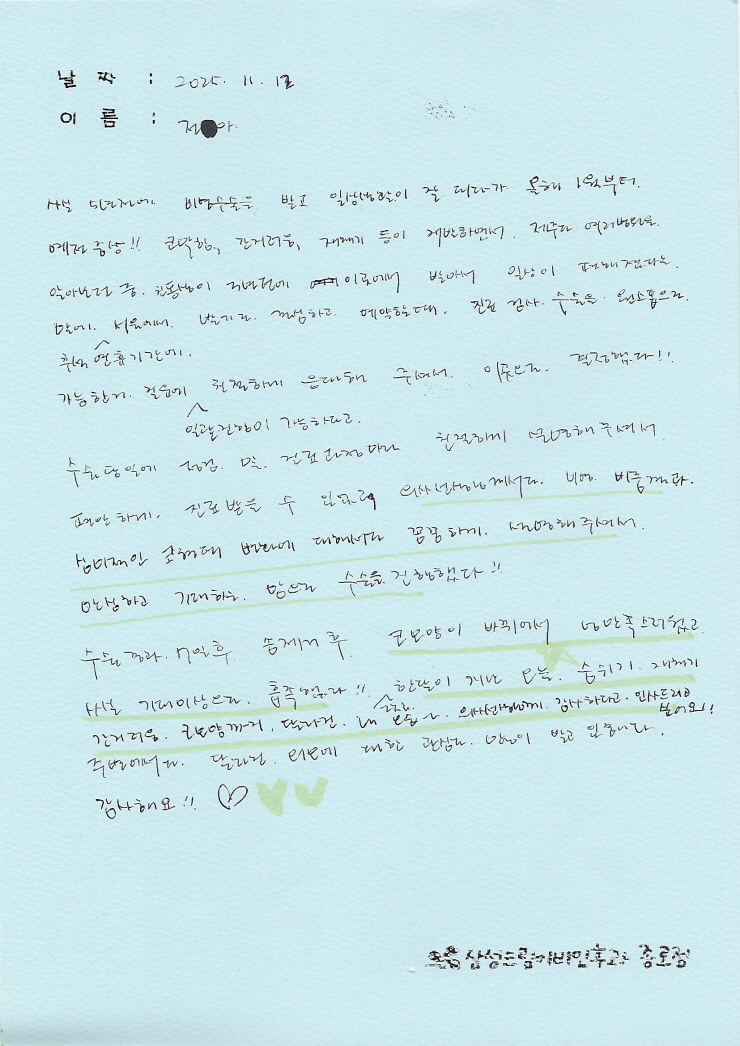 날 짜 : 2025. 11. 12
이 름 : 정 아.
사실 5년전에 비염수술을 받고 일상생활이 잘 되다가 올해 1월부터.
예전증상!! 코막힘, 간지러움, 재채기 등이 재발하면서. 제주도 여러병원을
알아보던 중. 친동생이 작년전에 이곳에서 받아서 일상이 편해졌다는
말에. 서울에서. 받기로 결심하고 예약할때. 진료 검사 수술을 원스톱으로
추석 연휴기간에.
가능한지 질문에 친절하게 응대해 주셔서. 이곳으로 결정했다!!
일괄진행이 가능하다고.
수술당일에 점검. 및. 진료과정마다 친절하게 설명해주셔서
편안하게. 진료받을 수 있었고 의사선생님께서도. 비염. 비중격과.
심미적인 코형태 변화에 대해서도 꼼꼼하게. 설명해주셔서.
안심하고 기대하는 맘으로 수술을 진행했다!!
수술결과. 7일후. 솜제거후. 코모양이 바뀌어서 넘만족스러웠고.
사실 기대이상으로. 흡족했다!! 한달이 지난 오늘. 숨쉬기. 재채기
간지러움. 코모양까지. 달라진. 내 모습에 의사선생님께 감사하다고. 인사드리러
왔어요!!
주변에서도. 달라진. 외모에 대한 관심도. 많이 받고 있습니다.
감사해요!! ♡
삼성드림이비인후과 종로점